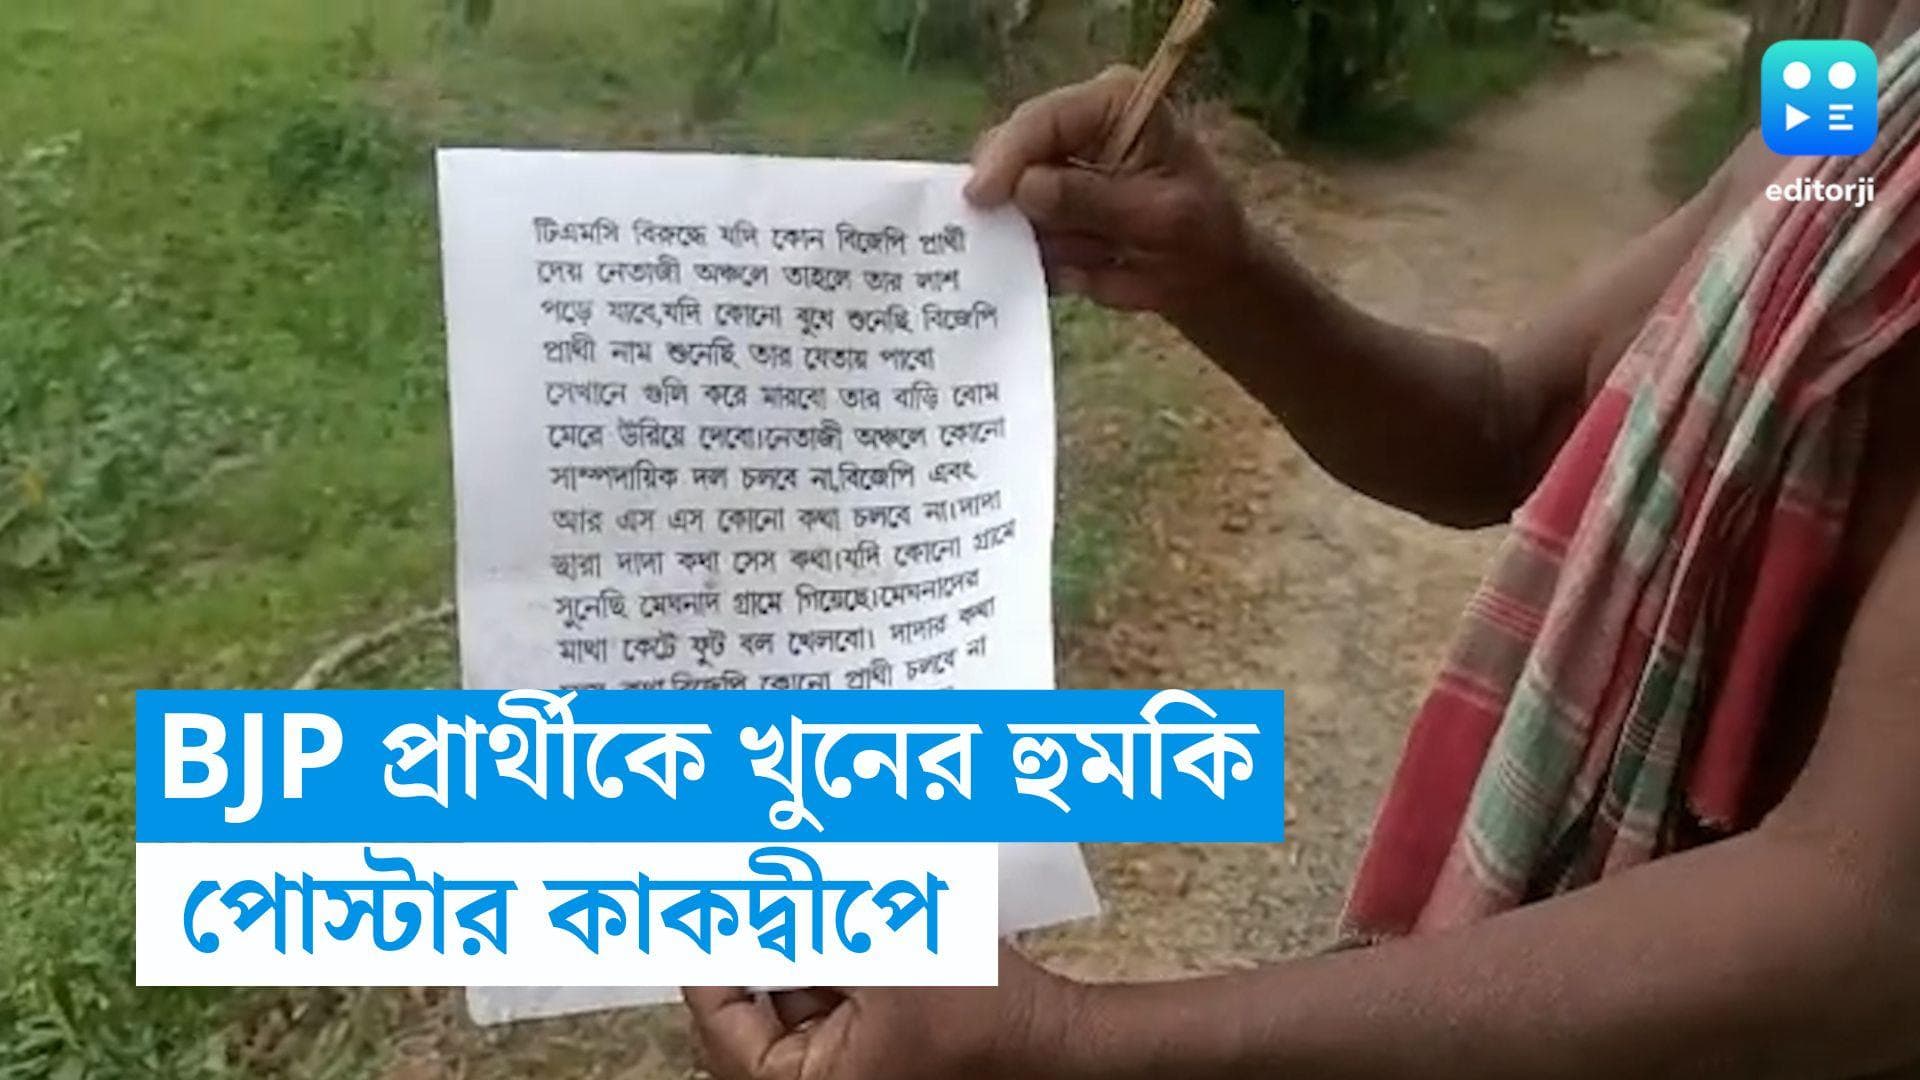 editorji
টিএমসি বিরুদ্ধে যদি কোন বিজেপি প্রার্থী
দেয় নেতাজী অঞ্চলে তাহলে তার লাশ
পড়ে যাবে,যদি কোনো বুথে শুনেছি বিজেপি
প্রার্থী নাম শুনেছি তার যেতায় পাবো
সেখানে গুলি করে মারবো তার বাড়ি বোম
মেরে উরিয়ে দেবো।নেতাজী অঞ্চলে কোনো
সাম্পদায়িক দল চলবে না,বিজেপি এবং
আর এস এস কোনো কথা চলবে না।দাদা
দ্বারা দাদা কথা সেস কথা।যদি কোনো গ্রামে
সুনেছি মেঘনাদ গ্রামে গিয়েছে।মেঘনাদের
মাথা কেটে ফুট বল খেলবো। দাদার কথা
কথা,বিজেপি কোনো প্রার্থী চলবে না
BJP প্রার্থীকে খুনের হুমকি
পোস্টার কাকদ্বীপে